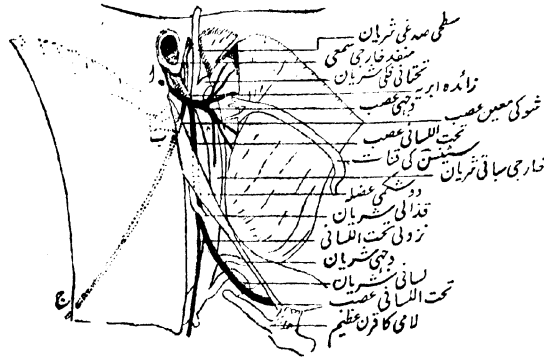 سطحی صدغی شریان
منفذ خارجی سمعی
تحتانی فکی شریان
زائدہ ابریہ
وجہی عصب
شوکی معین عصب
تحت اللسانی عصب
سٹینسن کی قنات
خارجی سباتی شریان
دوشکمی عضلہ
قذالی شریان
نزولی تحت اللسانی
وجہی شریان
لسانی شریان
تحت اللسانی عصب
لامی کا قرن عظیم
ا
ب
ج